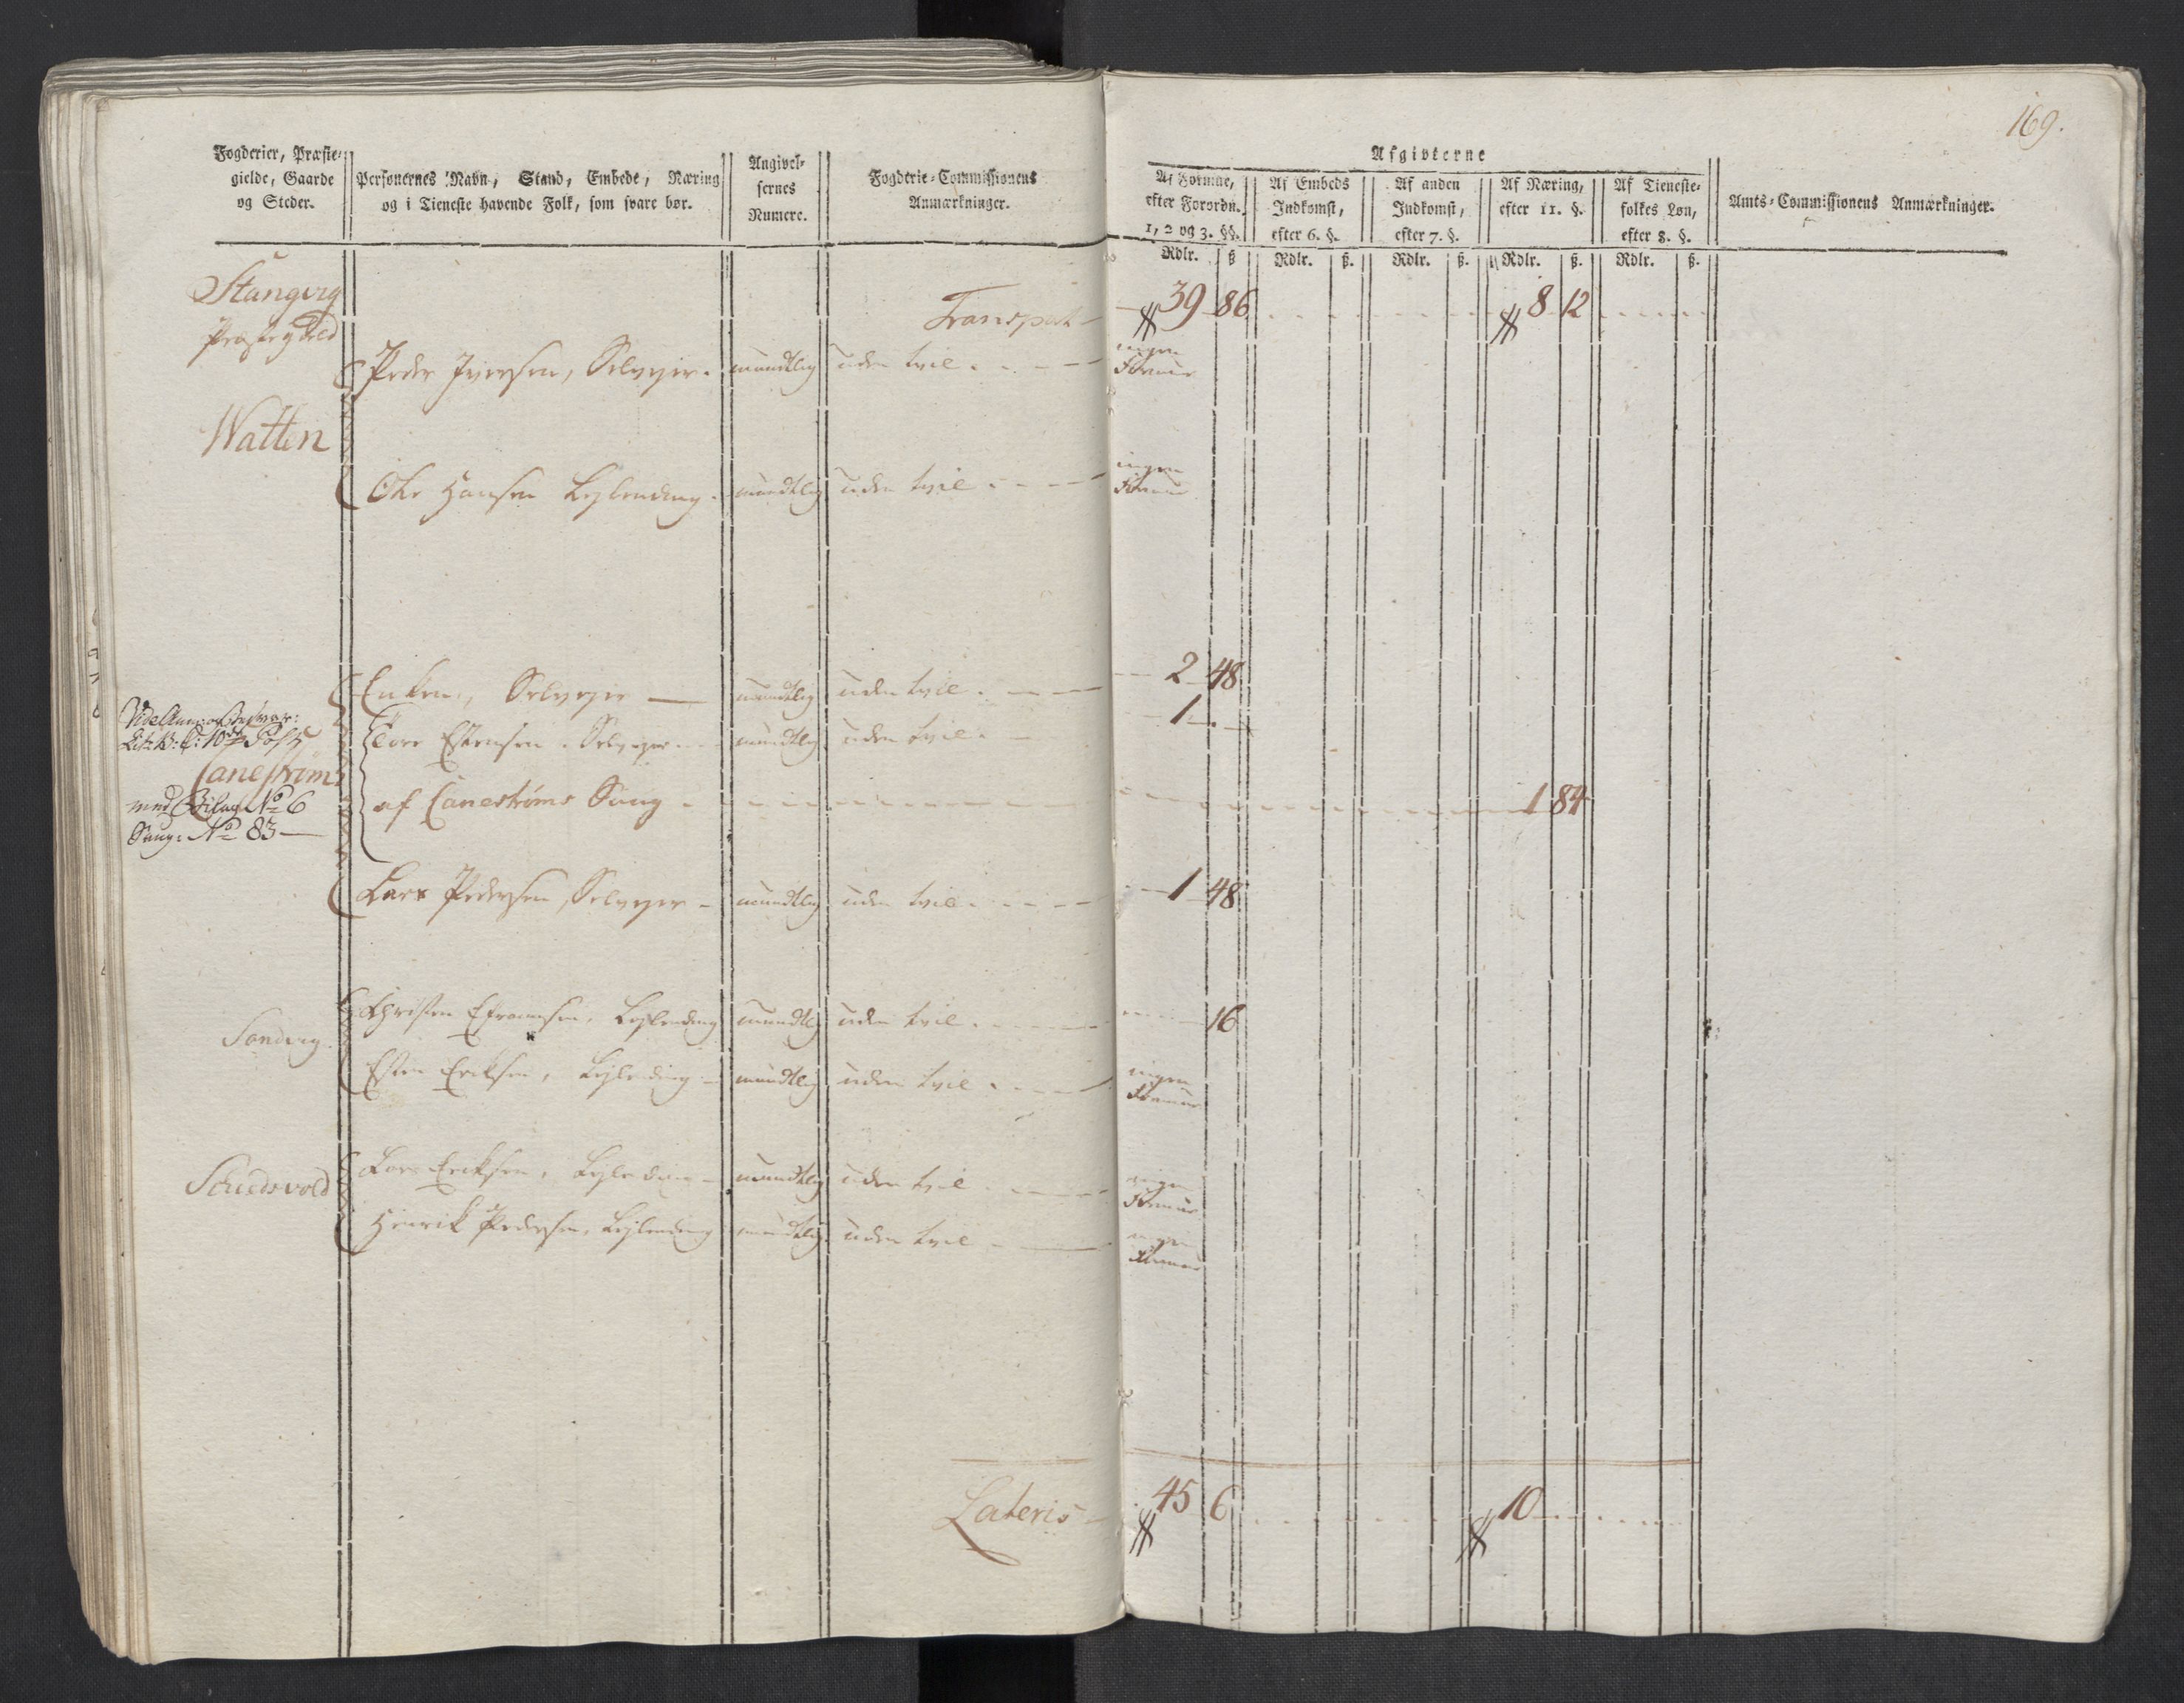 169.
Fogderier, Præste-
gielde, Gaarde
og Steder.
Personernes Navn, Stand, Embede, Næring
og i Tieneste havende Folk, som svare bør.
Angivel-
sernes
Numere.
Fogderie-Commissionens
Anmærkninger.
Afgivterne
Af Formue,
efter Forordn.
1, 2 og 3. §§.
Af Embeds
Indkomst,
efter 6. §.
Af anden
Indkomst,
efter 7. §.
Af Næring,
efter 11. §.
Af Tieneste-
folkes Løn,
efter 8. §.
Amts-Commissionens Anmærkninger.
Rdlr. ß. Rdlr. ß. Rdlr. ß. Rdlr. ß. Rdlr. ß.
Stangvig
Præstegield
Transport 39 86 8 12
Peder Iversen, Selvejer mundtlig uden tvil ingen
Formue
Watten
Ole Hansen Lejlending mundtlig uden tvil ingen
Formue
Enken, Selvejer mundtlig uden tvil 2 48
Tore Estensen Selvejer mundtlig uden tvil 1
Lit: B:
Canestrøm
af Canestrøms Saug 1 84
med Bilag No 6
Saug: No 83
Lars Pedersen, Selvejer mundtlig uden tvil 1 48
Sandvig
Christen Efraimsen, Lejlending mundtlig uden tvil 16
Esten Eriksen, Lejlending mundtlig uden tvil ingen
Formue
Lars Eriksen, Lejlending mundtlig uden tvil ingen
Formue
Henrik Pedersen, Lejlending mundtlig uden tvil ingen
Formue
Lateris 45 6 10